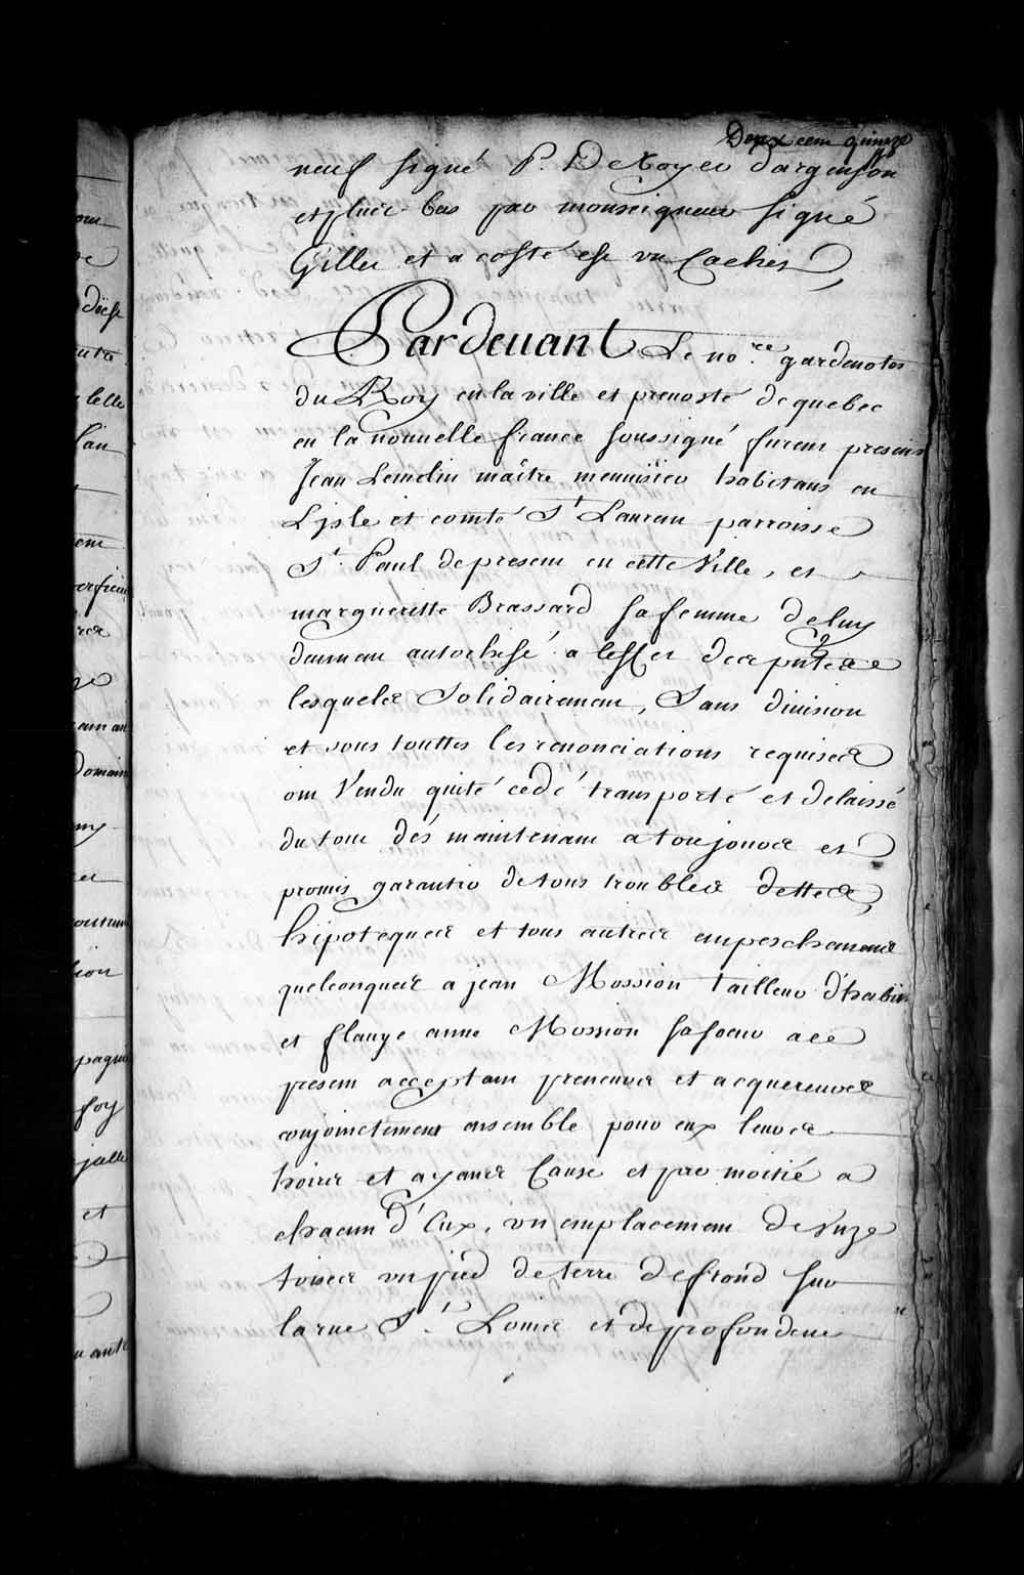 Deux cem quinze
neuf signé P. De Voyer dargenson
et plus bas par monseigneur signé
Gilles et a costé est vn Cachet
Pardeuant Le no.re gardenotes
du Roy en la ville et preuosté de quebec
en la nouuelle france soussigné furem presens
Jean Lemelin maître menuisier habitans en
L'isle et comté St Lauren parroisse
St. Paul depresem en cette Ville, et
margueritte Brassard sa femme deluy
deuueau autorhisé a leffet des pntes
lesqueles Solidairemem, Sans diuision
et sous touttes les renonciations requises
om Vendu quité cedé transporté et delaissé
du tout dés maintenam a toujoues et
promis garantir de tous troubles dettes
hipoteques et tous autres empeschemens
quelconques a jean Mossion tailleur d'habits
et flauye anne Mossion sa soeur a ce
presem acceptam preneuur et acquereuurs
conjoinctement ensemble pour eux leurs
hoirs et ayans Cause et par moitié a
chacun d'Eux, vn emplacemem de vnze
toises vn pied de terre de frond sur
la rue St. Louis et de profondeur